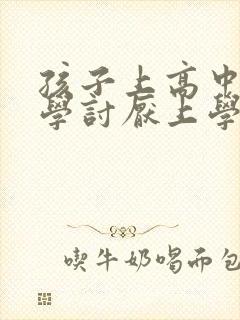 孩子上高中
學討厭上學
喫牛奶喝而包